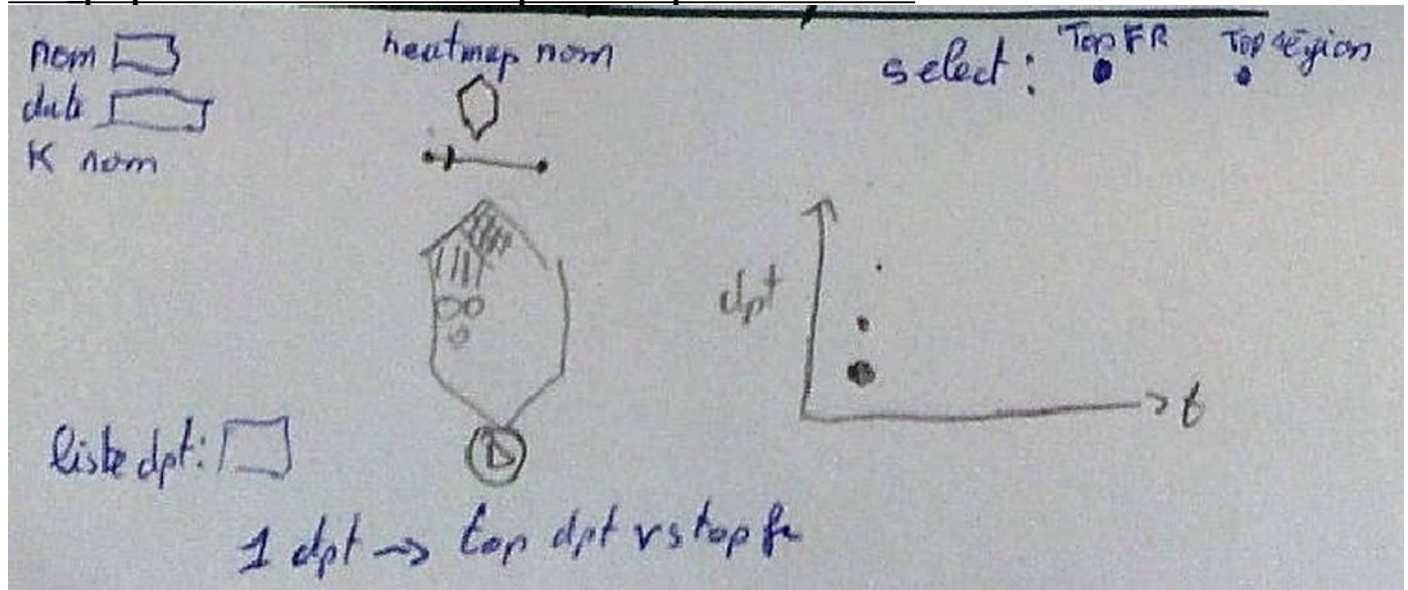 nom
date
K nom
heatmap nom
select: Top FR Top région
dpt
t
liste dpt:
1 dpt → top dpt vs top fr